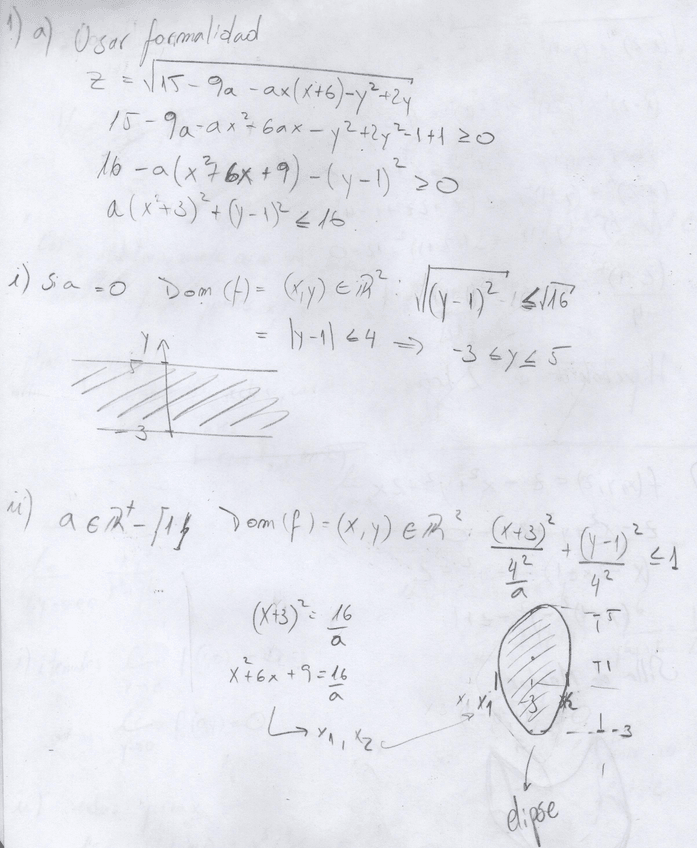 1) a) Usar formalidad
z = √(15 - 9a - ax(x+6) - y² + 2y
15 - 9a - ax² + 6ax - y² + 2y² - 1 + 1 ≥ 0
16 - a(x² + 6x + 9) - (y-1)² ≥ 0
a(x+3)² + (y-1)² ≤ 16
i) Si a = 0 Dom(f) = (x,y) ∈ ℝ² : √(y-1)² ≤ √16
= |y-1| ≤ 4 ⇒ -3 ≤ y ≤ 5
y
5
-3
ii) a ∈ ℝ⁺ - {1} Dom(f) = (x,y) ∈ ℝ² : (x+3)²/(4²/a) + (y-1)²/4² ≤ 1
(x+3)² = 16/a
x² + 6x + 9 = 16/a
↳ x₁, x₂
5
1
x₁ -3 x₂
-3
elipse